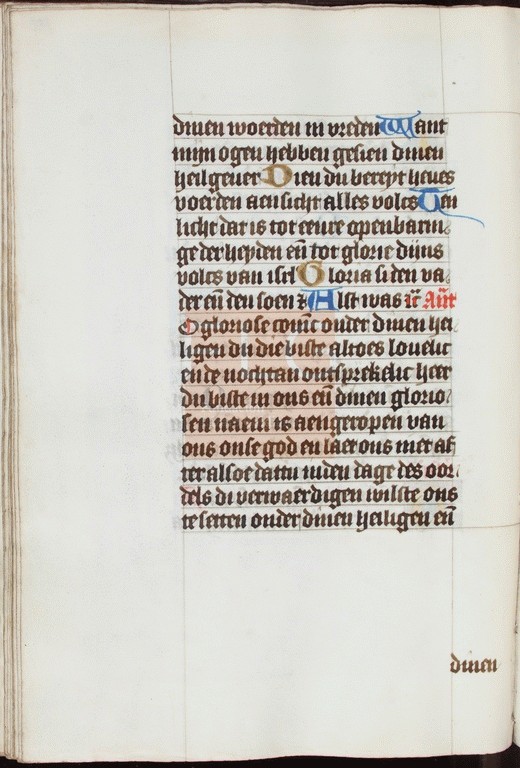 dinen woerden in vreden Want
mijn ogen hebben gesien dinen
heilgeuer Dien du bereyt heues
voerden aensicht alles volcs Een
licht dat is tot eenre openbarin
ge der heyden eñ tot glorie dijns
volcs van isrl Gloria si den va
der eñ den soen ⁊ Alst was ic̄ Añt
O gloriose coninc onder dinen hei
ligen du die biste altoes louelic
ende nochtan ontsprekelic heer
du biste in ons eñ dinen glorio
sen naem is aengeropen van
ons onse god en laet ons niet af
ter alsoe dattu inden dage des oor
dels di verwaerdigen wilste ons
te setten onder dinen heiligen eñ
dinen